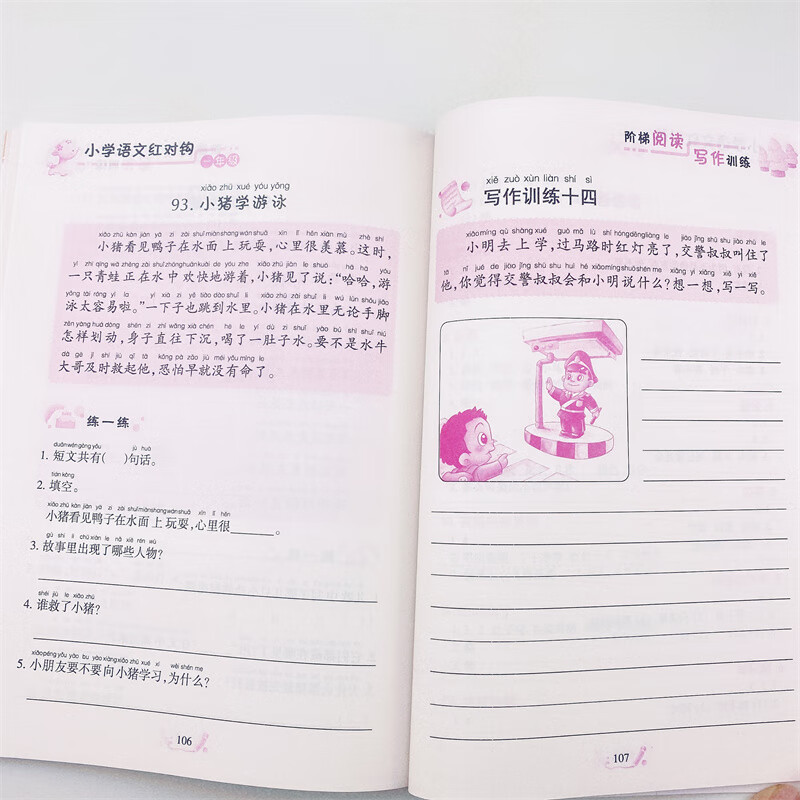 小学语文红对钩
一年级
xiǎo zhū xué yóu yǒng
93. 小猪学游泳
xiǎo zhū kàn jiàn yā zi zài shuǐ miàn shang wán shuǎ xīn lǐ hěn xiàn mù zhè shí
小猪看见鸭子在水面上玩耍,心里很羡慕。这时,
yì zhī qīng wā zhèng zài shuǐ zhōng huān kuài de yóu zhe xiǎo zhū jiàn le shuō hā hā yóu
一只青蛙正在水中欢快地游着,小猪见了说:“哈哈,游
yǒng tài róng yì la yí xià zi yě tiào dào shuǐ li xiǎo zhū zài shuǐ li wú lùn shǒu jiǎo
泳太容易啦。”一下子也跳到水里。小猪在水里无论手脚
zěn yàng huá dòng shēn zi zhí wǎng xià chén hē le yí dù zi shuǐ yào bú shì shuǐ niú
怎样划动,身子直往下沉,喝了一肚子水。要不是水牛
dà gē jí shí jiù qǐ tā kǒng pà zǎo jiù méi yǒu mìng le
大哥及时救起他,恐怕早就没有命了。
练一练
duǎn wén gòng yǒu jù huà
1. 短文共有( )句话。
tián kòng
2. 填空。
xiǎo zhū kàn jiàn yā zi zài shuǐ miàn shang wán shuǎ xīn lǐ hěn
小猪看见鸭子在水面上玩耍,心里很______。
gù shi li chū xiàn le nǎ xiē rén wù
3. 故事里出现了哪些人物?
shéi jiù le xiǎo zhū
4. 谁救了小猪?
xiǎo péng yǒu yào bu yào xiàng xiǎo zhū xué xí wèi shén me
5. 小朋友要不要向小猪学习,为什么?
106
阶梯阅读
写作训练
xiě zuò xùn liàn shí sì
写作训练十四
xiǎo míng qù shàng xué guò mǎ lù shí hóng dēng liàng le jiāo jǐng shū shu jiào zhù le
小明去上学,过马路时红灯亮了,交警叔叔叫住了
tā nǐ jué de jiāo jǐng shū shu huì hé xiǎo míng shuō shén me xiǎng yi xiǎng xiě yi xiě
他,你觉得交警叔叔会和小明说什么?想一想,写一写。
107